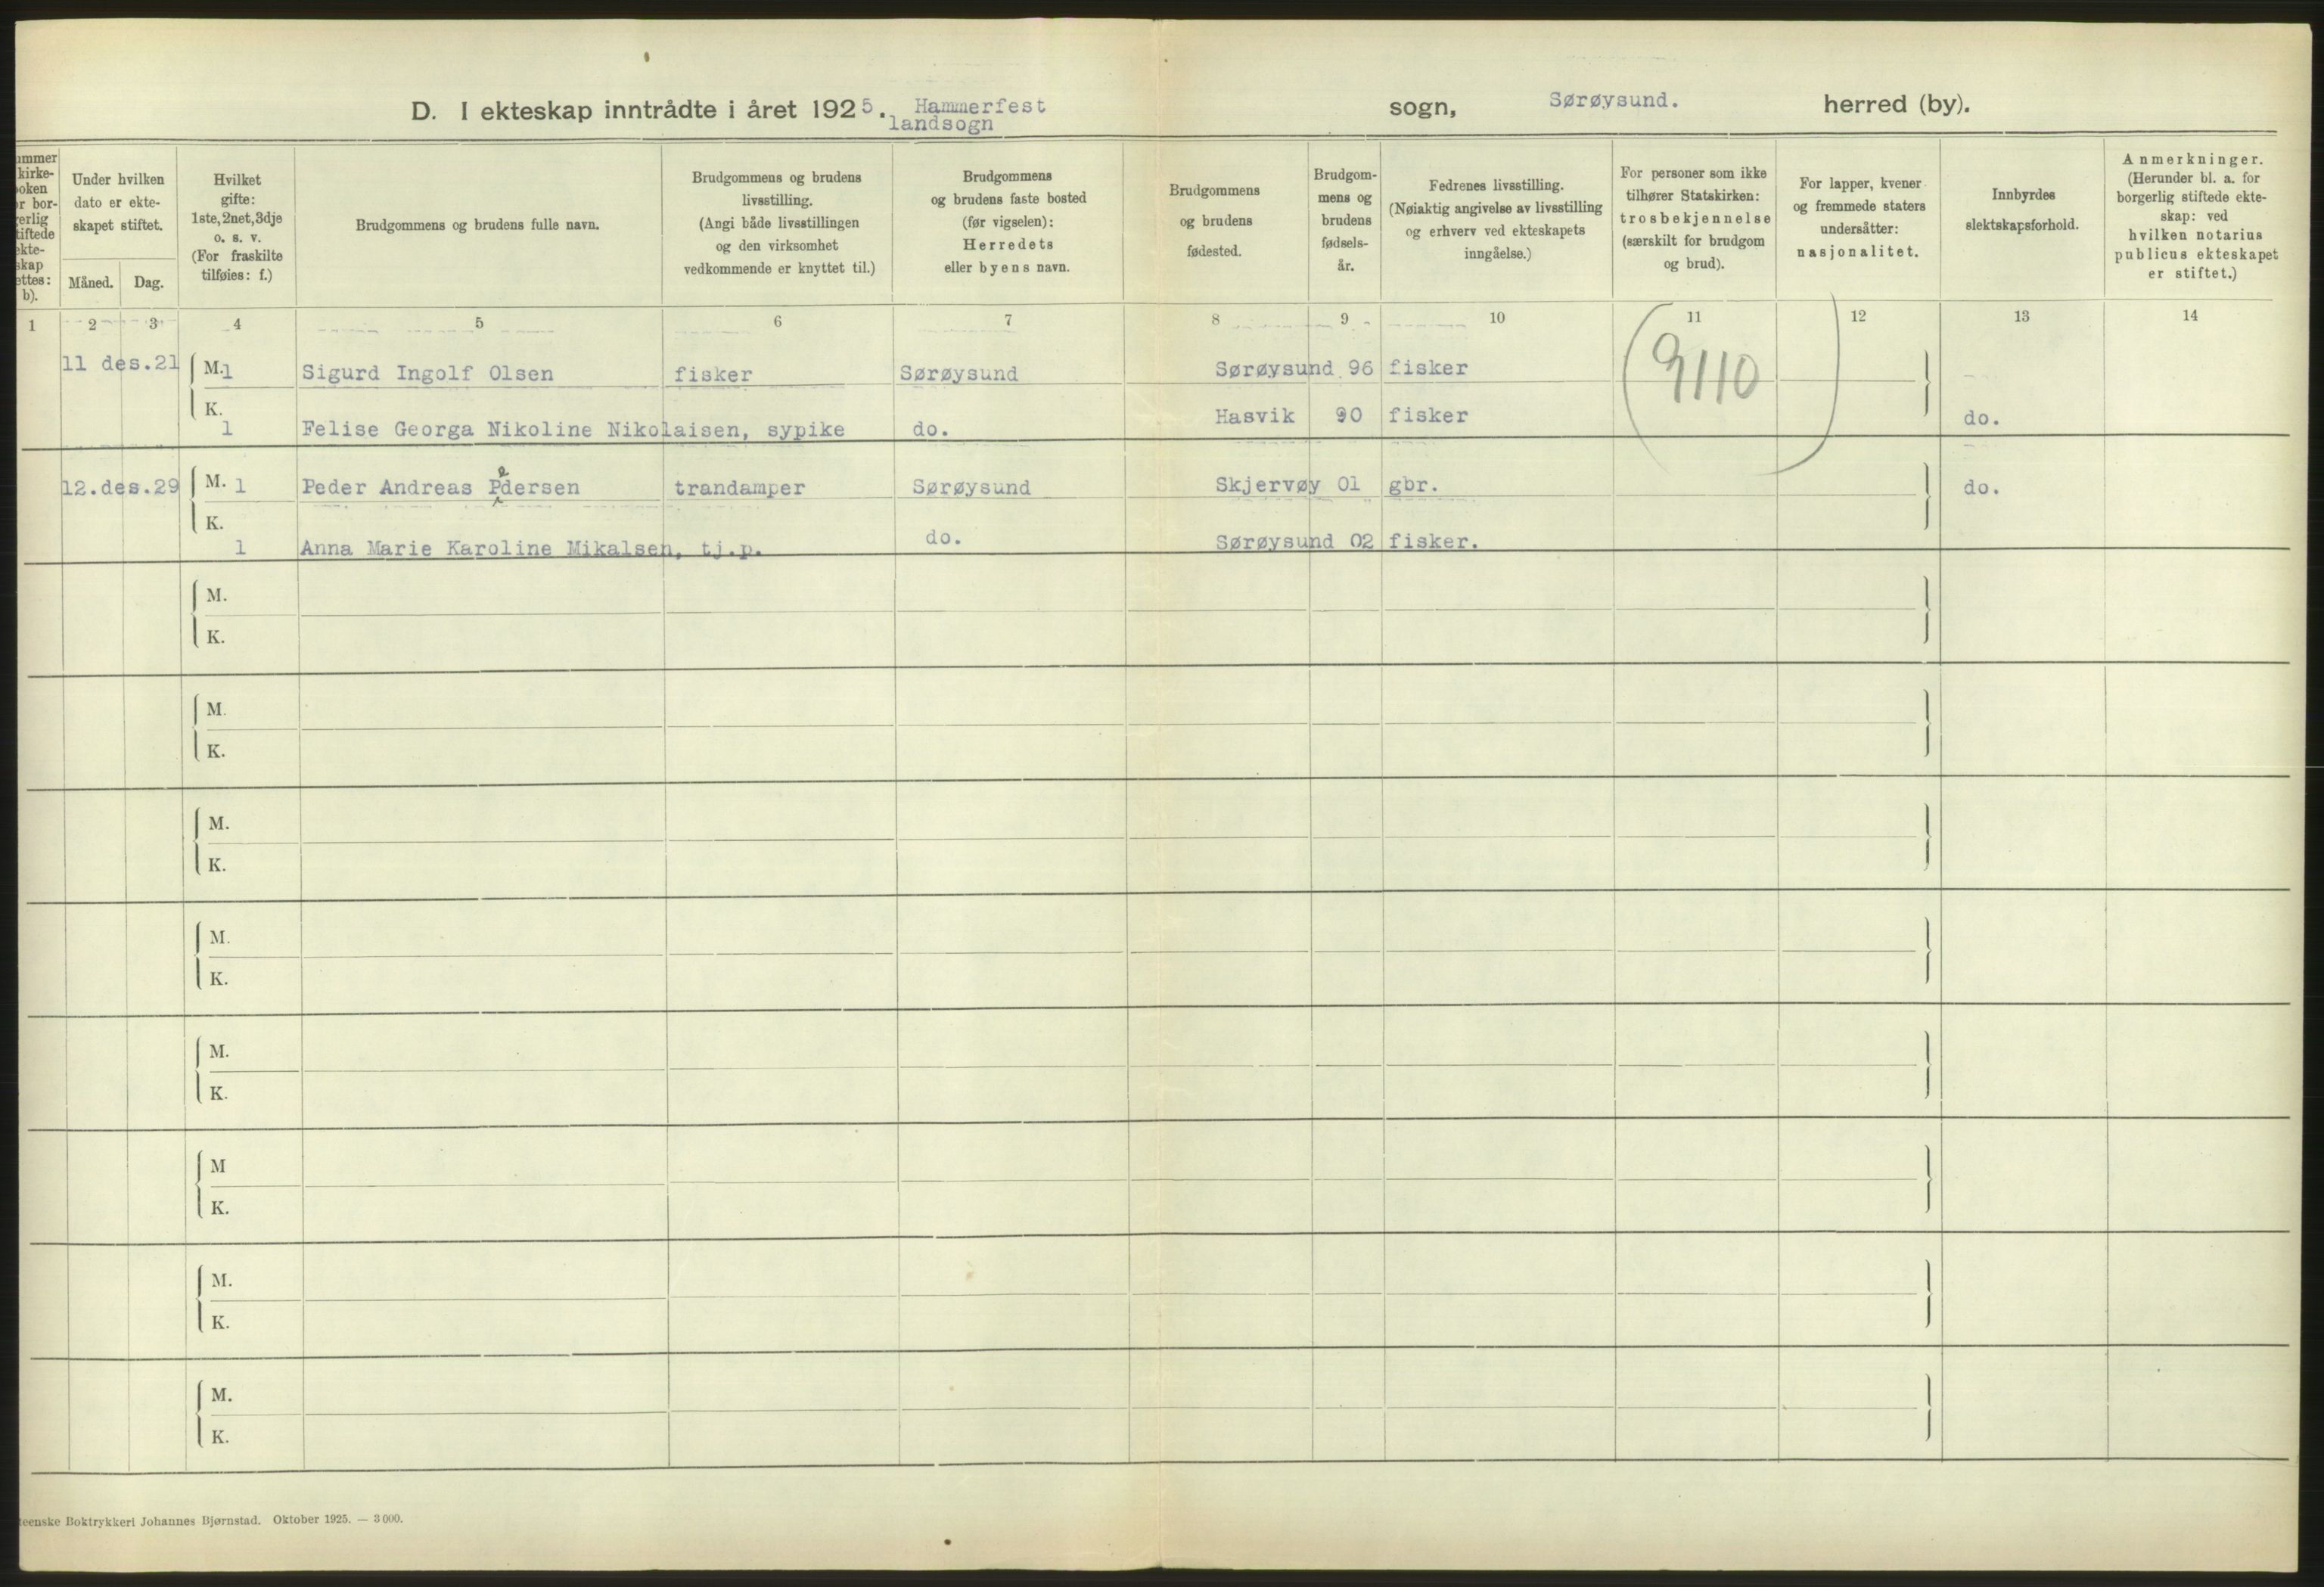 D. I ekteskap inntrådte i året 1925. Hammerfest landsogn sogn, Sørøysund. herred (by).
ummer
kirke-
oken
r bor-
erlig
tiftede
ekte-
skap
ettes:
b).
Under hvilken
dato er ekte-
skapet stiftet.
Måned. Dag.
Hvilket
gifte:
1ste, 2net, 3dje
o. s. v.
(For fraskilte
tilføies: f.)
Brudgommens og brudens fulle navn.
Brudgommens og brudens
livsstilling.
(Angi både livsstillingen
og den virksomhet
vedkommende er knyttet til.)
Brudgommens
og brudens faste bosted
(før vigselen):
Herredets
eller byens navn.
Brudgommens
og brudens
fødested.
Brudgom-
mens og
brudens
fødsels-
år.
Fedrenes livsstilling.
(Nøiaktig angivelse av livsstilling
og erhverv ved ekteskapets
inngåelse.)
For personer som ikke
tilhører Statskirken:
trosbekjennelse
(særskilt for brudgom
og brud).
For lapper, kvener
og fremmede staters
undersåtter:
nasjonalitet.
Innbyrdes
slektskapsforhold.
Anmerkninger.
(Herunder bl. a. for
borgerlig stiftede ekte-
skap: ved
hvilken notarius
publicus ekteskapet
er stiftet.)
1 2 3 4 5 6 7 8 9 10 11 12 13 14
11 des.21 M.1 Sigurd Ingolf Olsen fisker Sørøysund Sørøysund 96 fisker
9110
K. 1 Felise Georga Nikoline Nikolaisen, sypike do. Hasvik 90 fisker do.
12.des.29 M. 1 Peder Andreas Pedersen trandamper Sørøysund Skjervøy 01 gbr. do.
K. 1 Anna Marie Karoline Mikalsen, tj.p. do. Sørøysund 02 fisker.
M.
K.
M.
K.
M.
K.
M.
K.
M.
K.
M
K.
M.
K.
M.
K.
eenske Boktrykkeri Johannes Bjørnstad. Oktober 1925. — 3000.